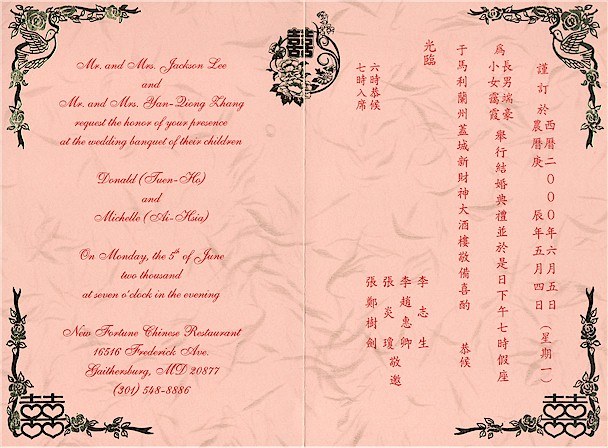 囍
Mr. and Mrs. Jackson Lee
and
Mr. and Mrs. Yan-Qiong Zhang
request the honor of your presence
at the wedding banquet of their children
Donald (Tuen-Ho)
and
Michelle (Ai-Hsia)
On Monday, the 5th of June
two thousand
at seven o'clock in the evening
New Fortune Chinese Restaurant
16516 Frederick Ave.
Gaithersburg, MD 20877
(301) 548-8886
囍
謹訂於
西曆二○○○年六月五日
農曆庚 辰年五月四日
(星期一)
為
長男瑞豪
小女靄霞
舉行結婚典禮並於是日下午七時假座
于馬利蘭州蓋城新財神大酒樓敬備喜酌 恭候
光臨
李志生
李趙惠卿
張炎瓊
張鄭樹劍
敬邀
六時恭候
七時入席
囍